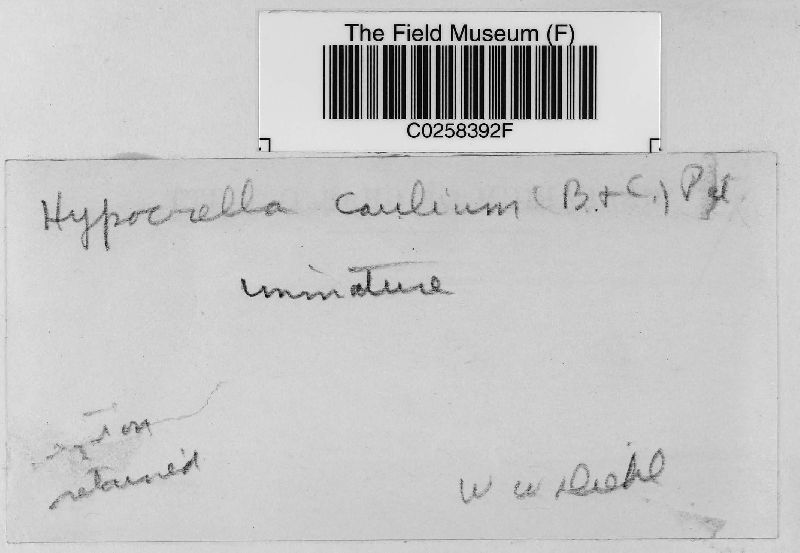 The Field Museum (F)
C0258392F
Hypocrella caulium (B. & C.) Pat.
immature
retained
W W Diehl